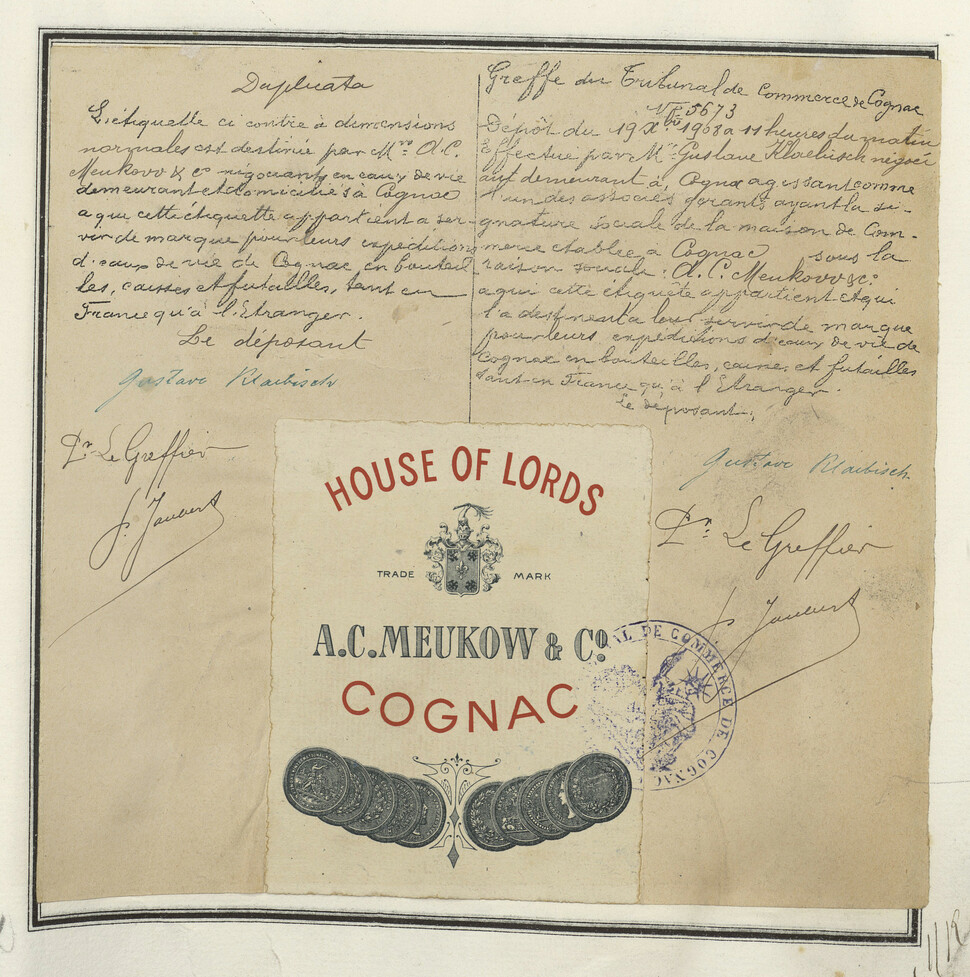 Duplicata
L'étiquette ci contre à dimensions
normales est destinée par Mrs A.C.
Meukow & Co négociants en eaux de vie
demeurant et domiciliés à Cognac
a qui cette étiquette appartient a ser-
vir de marque pour leurs expéditions
d'eaux de vie de Cognac en bouteil
les, caisses et futailles, tant en
France qu'à l'Etranger.
Le déposant
Gustave Klaebisch
Pr Le Greffier
Jaubert
Greffe du Tribunal de Commerce de Cognac
No 5673
Dépôt du 19 Xbre 1908 a 11 heures du matin
Effectué par Mr Gustave Klaebisch négoci
ant demeurant à Cognac agissant comme
l'un des associés gérants ayant la si-
gnature sociale de la maison de Com-
merce etablie à Cognac sous la
raison sociale: A.C. Meukow & Co
a qui cette étiquête appartient et qui
l'a destinent a leur servir de marque
pour leurs expéditions d'eaux de vie de
Cognac en bouteilles, caisses et futailles
tant en France qu'à l'Etranger.
Le déposant.
Gustave Klaebisch
Pr Le Greffier
Jaubert
HOUSE OF LORDS
TRADE MARK
A.C. MEUKOW & Co.
COGNAC
AL DE COMMERCE DE COGNAC